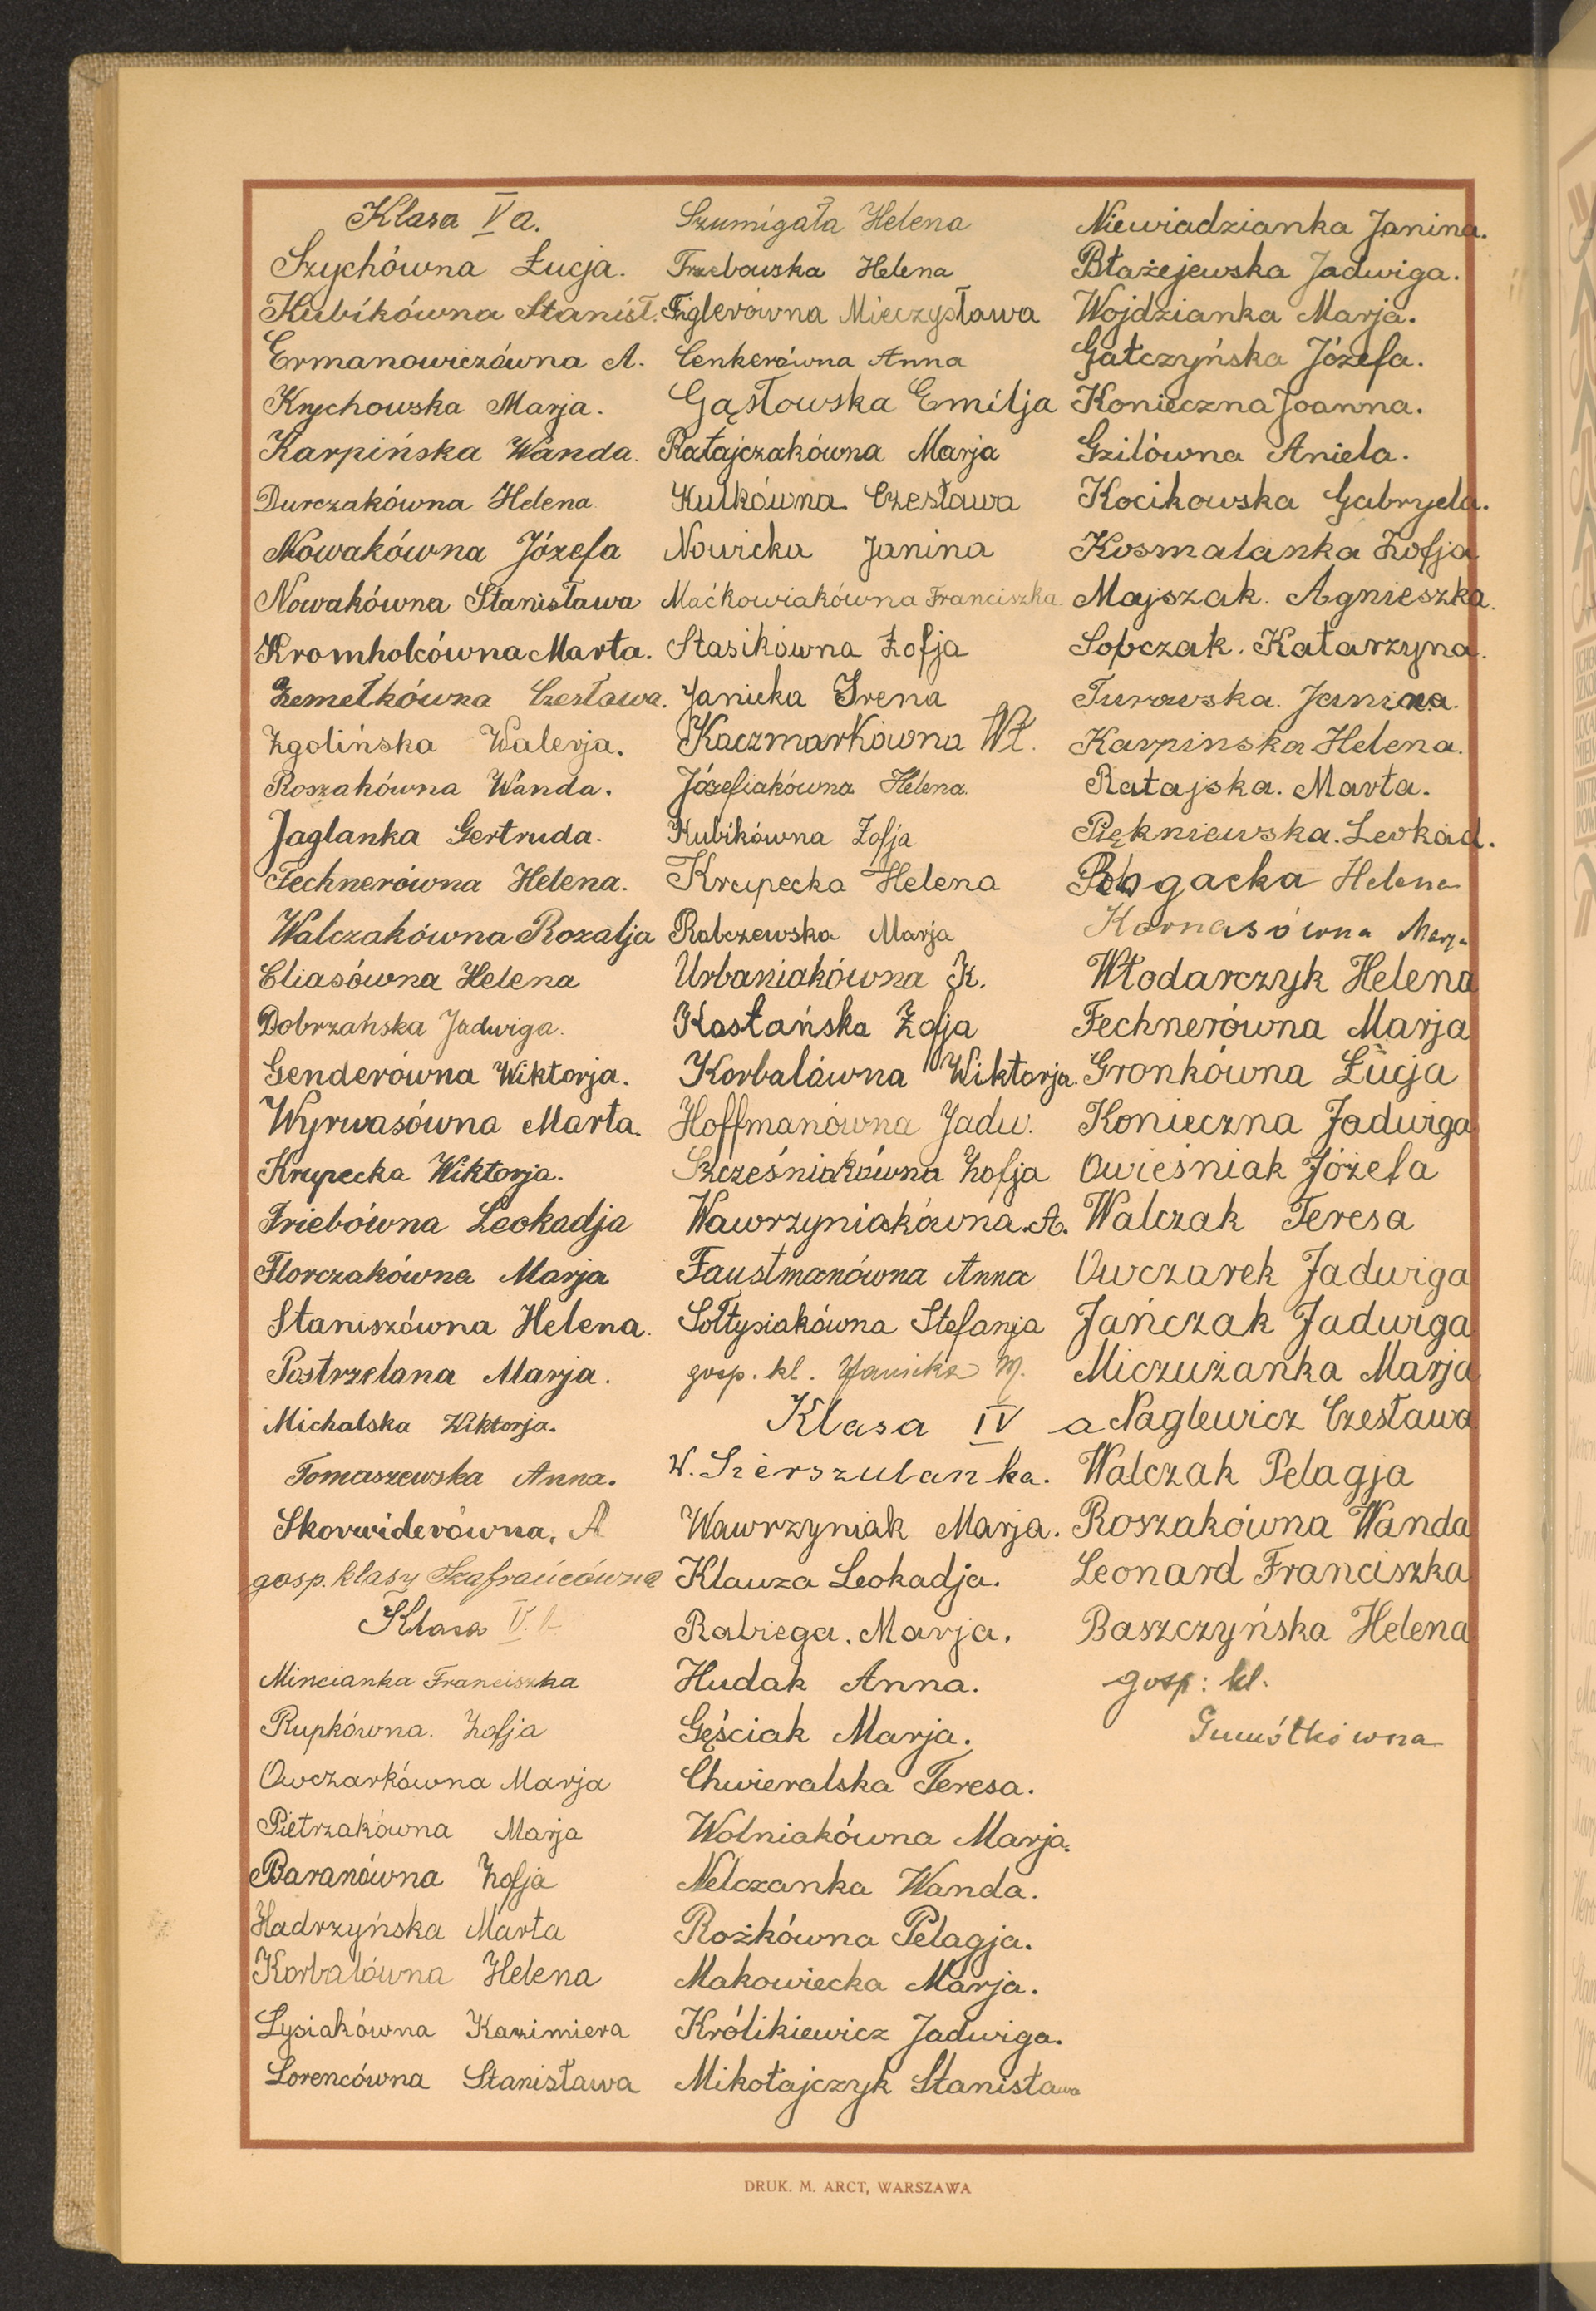 Klasa V a.
Szychówna Łucja.
Kubikówna Stanisł.
Ermanowiczówna A.
Krychowska Marja.
Karpińska Wanda.
Durczakówna Helena
Nowakówna Józefa
Nowakówna Stanisława
Kromholcówna Marta.
Zemełkówna Czesława.
Zgolińska Walerja.
Roszakówna Wanda.
Jaglanka Gertruda.
Fechnerówna Helena.
Walczakówna Rozalja
Eliasówna Helena
Dobrzańska Jadwiga.
Genderówna Wiktorja.
Wyrwasówna Marta.
Krupecka Wiktorja.
Friebówna Leokadja
Florczakówna Marja
Staniszówna Helena.
Postrzelana Marja.
Michalska Wiktorja.
Tomaszewska Anna.
Skorwiderówna, A
gosp. klasy Szafrańcówna
Klasa V. b
Mincianka Franciszka
Rupkówna. Zofja
Owczarkówna Marja
Pietrzakówna Marja
Baranówna Zofja
Hadrzyńska Marta
Korbalówna Helena
Łysiakówna Kazimiera
Lorencówna Stanisława
Szumigała Helena
Trzebowska Helena
Figlerówna Mieczysława
Cenkerówna Anna
Gąsłowska Emilja
Ratajczakówna Marja
Kulkówna Czesława
Nowicka Janina
Maćkowiakówna Franciszka.
Stasikówna Zofja
Janicka Irena
Kaczmarkówna Wł.
Józefiakówna Helena.
Kubikówna Zofja
Krupecka Helena
Robczewska Marja
Urbaniakówna K.
Kostańska Zofja
Korbalówna Wiktorja.
Hoffmanówna Jadw.
Szcześniakówna Zofja
Wawrzyniakówna A.
Faustmanówna Anna
Sołtysiakówna Stefanja
gosp. kl. Janicka M.
Klasa IV a
W. Szerszulanka.
Wawrzyniak Marja.
Klauza Leokadja.
Rabiega. Marja.
Hudak Anna.
Gęściak Marja.
Chwieralska Teresa.
Wolniakówna Marja.
Nelczanka Wanda.
Rożkówna Pelagja.
Makowiecka Marja.
Królikiewicz Jadwiga.
Mikołajczyk Stanisława
Niewiadzianka Janina.
Błażejewska Jadwiga.
Wojdzianka Marja.
Gałczyńska Józefa.
Konieczna Joanna.
Gzilówna Aniela.
Kocikowska Gabryela.
Kosmalanka Zofja
Majszak. Agnieszka.
Sobczak. Katarzyna.
Turowska. Janina.
Karpinska Helena.
Ratajska. Marta.
Piękniewska. Leokad.
Bogacka Helena
Karnasówna Marja
Włodarczyk Helena
Fechnerówna Marja
Gronkówna Łucja
Konieczna Jadwiga
Owieśniak Józefa
Walczak Teresa
Owczarek Jadwiga
Jańczak Jadwiga
Miczużanka Marja
Naglewicz Czesława
Walczak Pelagja
Roszakówna Wanda
Leonard Franciszka
Baszczyńska Helena
gosp: kl.
DRUK. M. ARCT, WARSZAWA